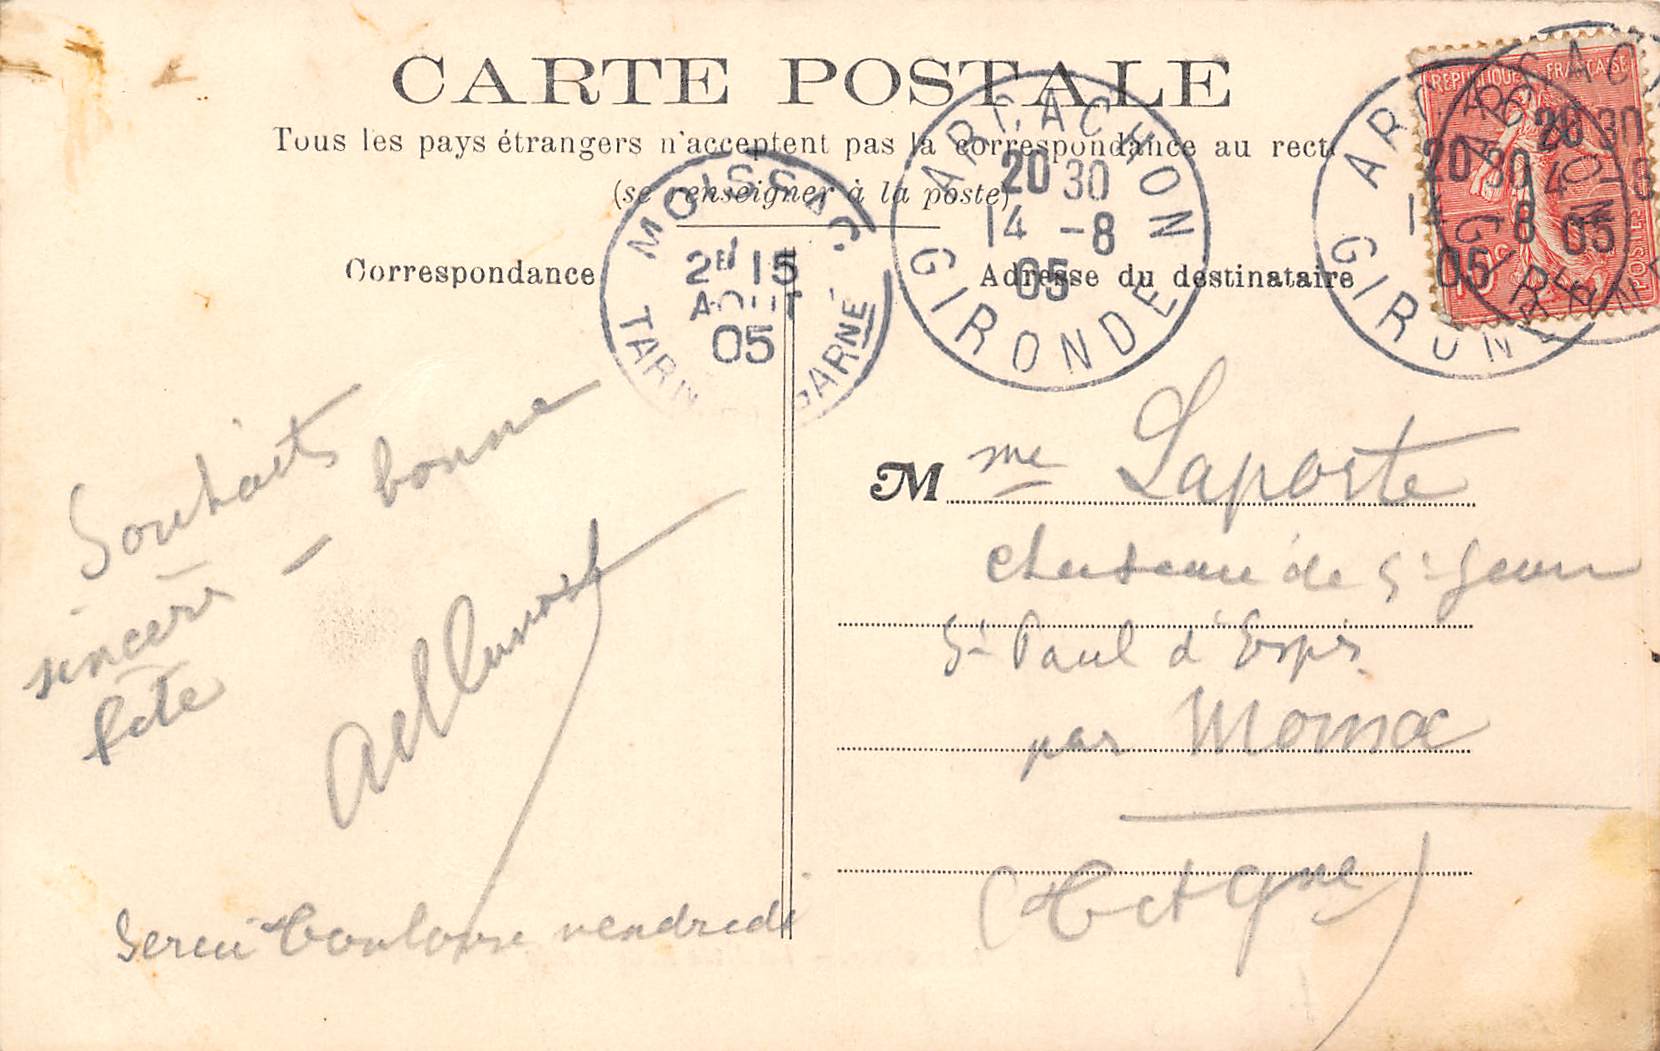 CARTE POSTALE
Tous les pays étrangers n'acceptent pas la correspondance au recto
(se renseigner à la poste)
Correspondance
Adresse du destinataire
MOISSAC
2E 15
AOUT
05
TARN ET GARNE
ARCACHON
20 30
14 -8
05
GIRONDE
ARCACHON
20 30
14 -8
05
GIRONDE
ARCACHON
20 30
14 -8
05
GIRONDE
REPUBLIQUE FRANÇAISE
10c
POSTES
Souhaits
sincères – bonne
fête
Serai Toulouse vendredi
M me Laporte
Chateau de St Jean
St Paul d'Espis
par Moissac
(T et Gne)